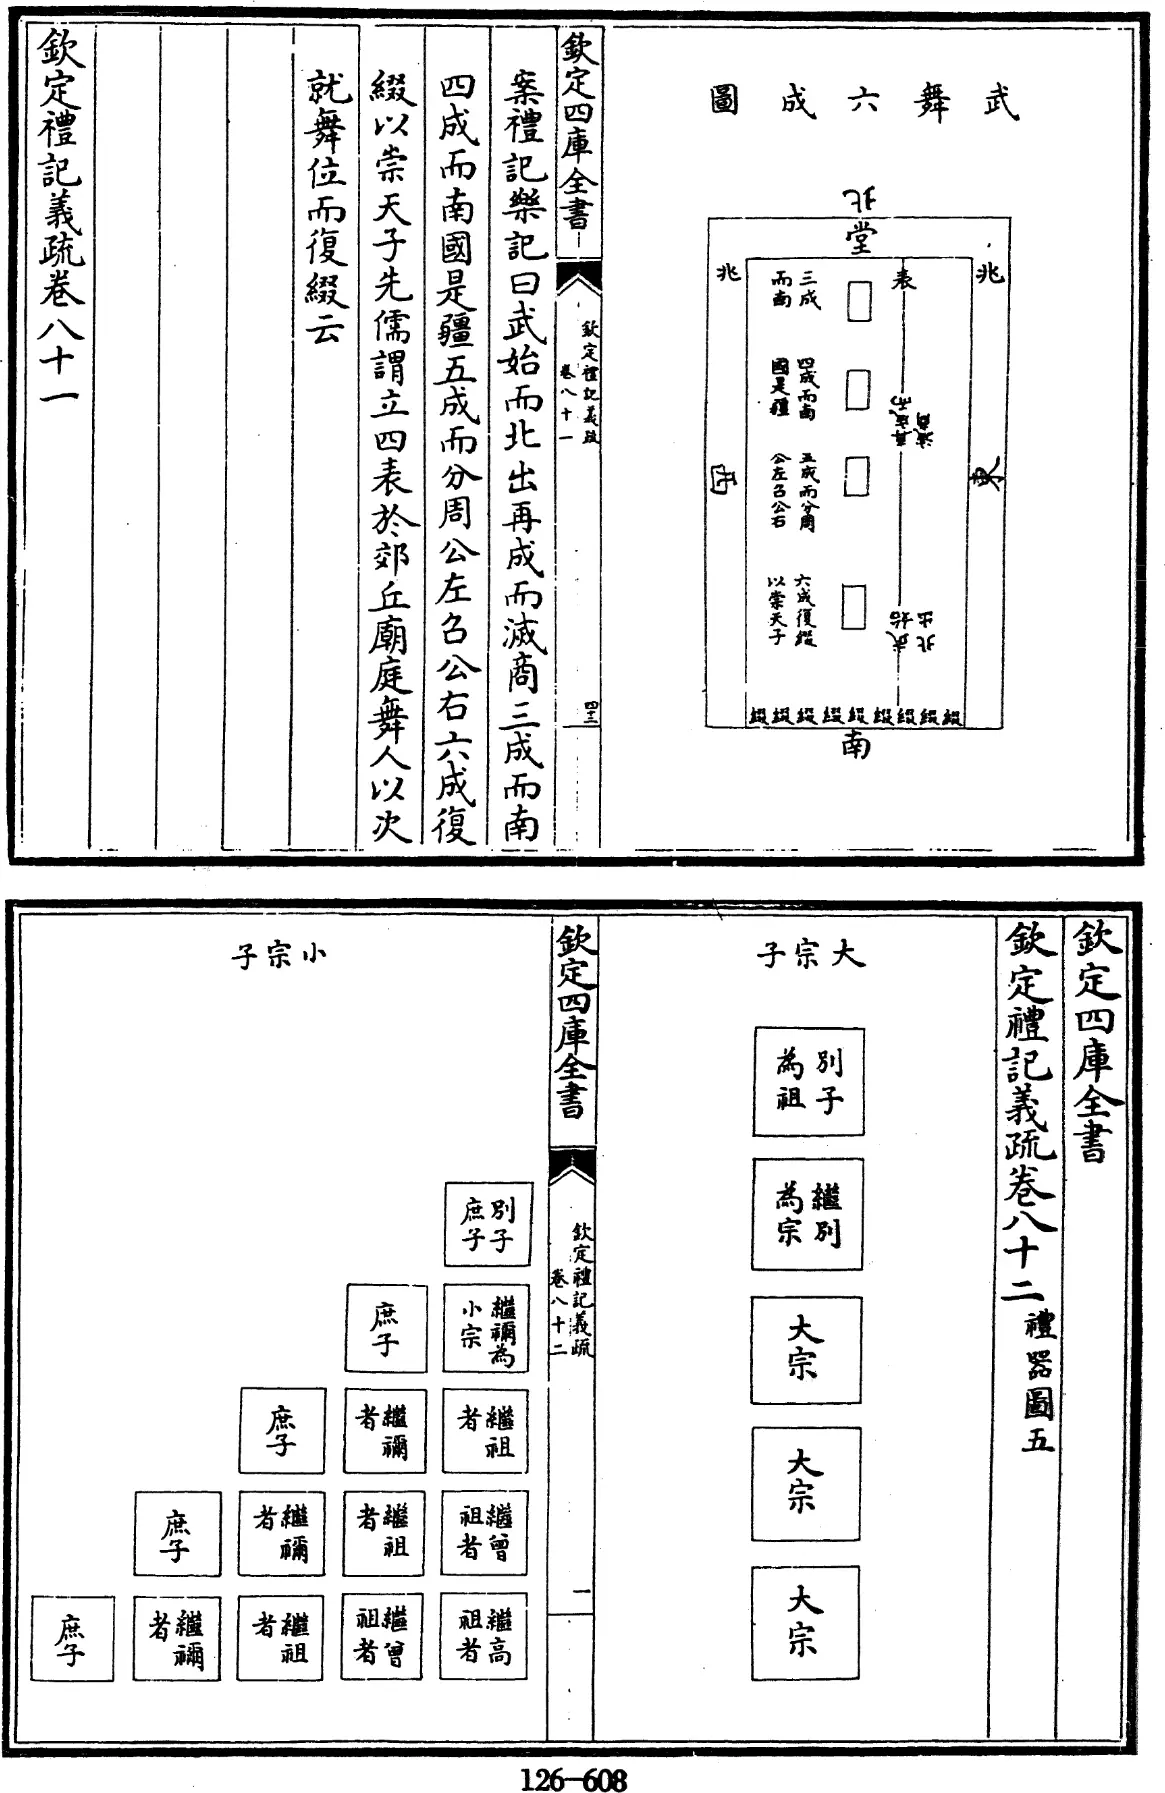 武舞六成圖
北
堂
兆
兆
表
三成
而南
四成而南
國是疆
再成而
滅商
五成而分周
公左召公右
東
西
六成復綴
以崇天子
始成
北出
綴綴綴綴綴綴綴綴綴
南
欽定四庫全書
欽定禮記義疏
卷八十一
四十三
案禮記樂記曰武始而北出再成而滅商三成而南
四成而南國是疆五成而分周公左召公右六成復
綴以崇天子先儒謂立四表於郊丘廟庭舞人以次
就舞位而復綴云
欽定禮記義疏卷八十一
欽定四庫全書
欽定禮記義疏卷八十二
禮器圖五
大宗子
別子
為祖
繼別
為宗
大宗
大宗
大宗
欽定四庫全書
欽定禮記義疏
卷八十二
一
小宗子
別子
庶子
繼禰為
小宗
庶子
繼祖
者
繼禰
者
庶子
繼曾
祖者
繼祖
者
繼禰
者
庶子
繼高
祖者
繼曾
祖者
繼祖
者
繼禰
者
庶子
126-608